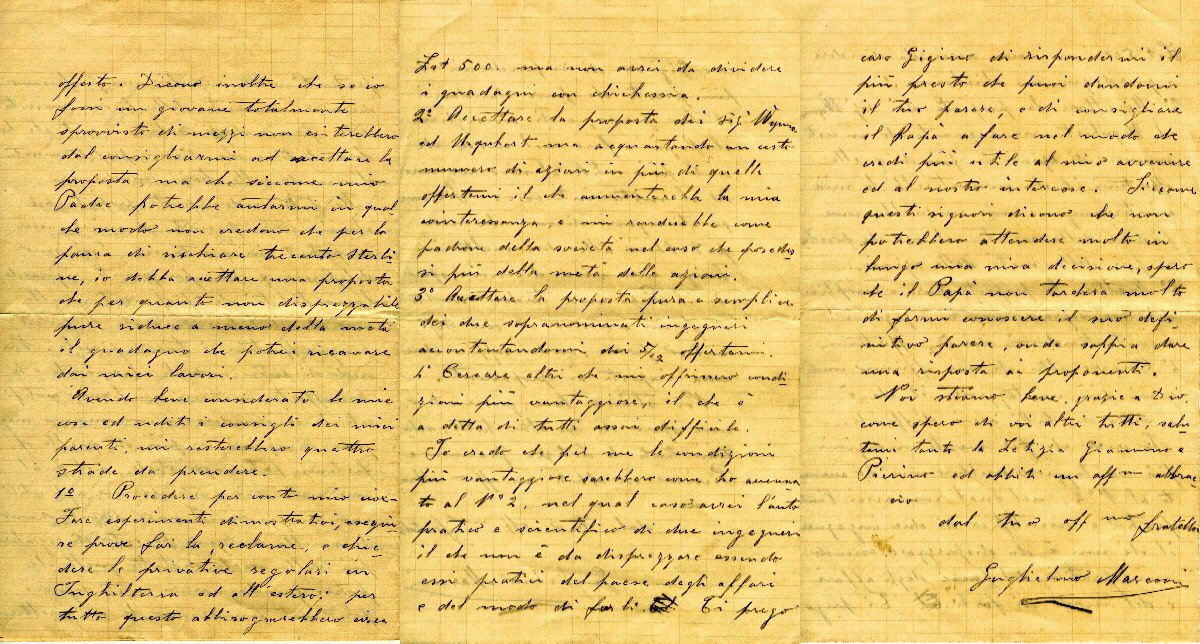 offerto. Dicono inoltre che se io
fossi un giovane totalmente
sprovvisto di mezzi non esiterebbero
dal consigliarmi ad accettare la
proposta, ma che siccome mio
Padre potrebbe aiutarmi in qual-
che modo non credono che per la
paura di rischiare trecento sterli-
ne, io debba accettare una proposta
che per quanto non disprezzabile
pure riduce a meno della metà
il guadagno che potrei ricavare
dai miei lavori.
Avendo bene considerato le mie
cose ed uditi i consigli dei miei
parenti, mi resterebbero quattro
strade da prendere.
1º Procedere per conto mio cioè
Fare esperimenti dimostrativi, esegui-
re prove far la reclame, e chie-
dere le privative regolari in
Inghilterra ed all'estero; per
tutto questo abbisognerebbero circa
Lst 500. ma non avrei da dividere
i guadagni con chichessia.
2º Accettare la proposta dei Sigi Wynne
ed Urquhart ma acquistando un certo
numero di azioni in più di quelle
offertemi il che aumenterebbe la mia
cointeressenza, e mi renderebbe come
padrone della società nel caso che possedes-
si più della metà delle azioni.
3º Accettare la proposta pura e semplice
dei due sopranominati ingegneri
accontentandomi dei 5/12 offertemi.
4º Cercare altri che mi offrissero condi-
zioni più vantaggiose, il che è
a detta di tutti assai difficile.
Io credo che per me le condizioni
più vantaggiose sarebbero come ho accenna-
to al Nº 2, nel qual caso avrei l'aiuto
pratico e scientifico di due ingegneri
il che non è da disprezzare essendo
essi pratici del paese degli affari
e del modo di farli. Ti prego
caro Gigino di rispondermi il
più presto che puoi dandomi
il tuo parere, e di consigliare
il Papà a fare nel modo che
credi più utile al mio avvenire
ed al nostro interesse. Siccome
questi signori dicono che non
potrebbero attendere molto in
lungo una mia decisione, spero
che il Papà non tarderà molto
di farmi conoscere il suo defi-
nitivo parere, onde sappia dare
una risposta ai proponenti.
Noi stiamo bene, grazie a Dio,
come spero di voi altri tutti, salu-
tami tanto la Letizia Giannino e
Pierino ed abbiti un affmo abbrac-
cio
dal tuo affmo fratello
Guglielmo Marconi